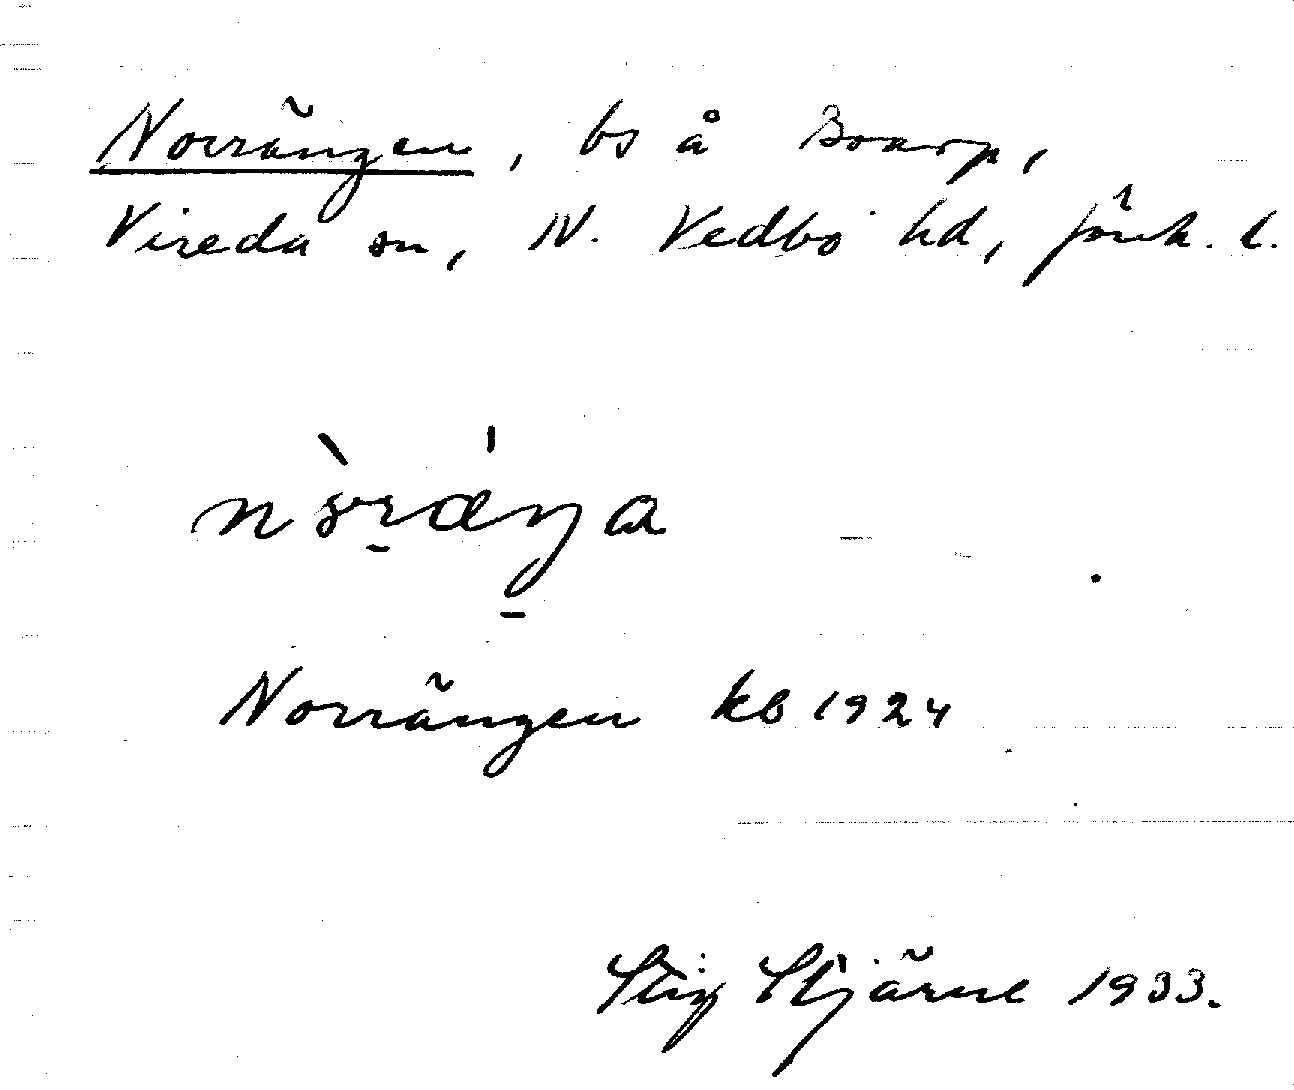 Norrängen, bs å Boarp,
Vireda sn, N. Vedbo hd, Jönk. l.
Norrängen kb 1924
Stig Stjärne 1933.